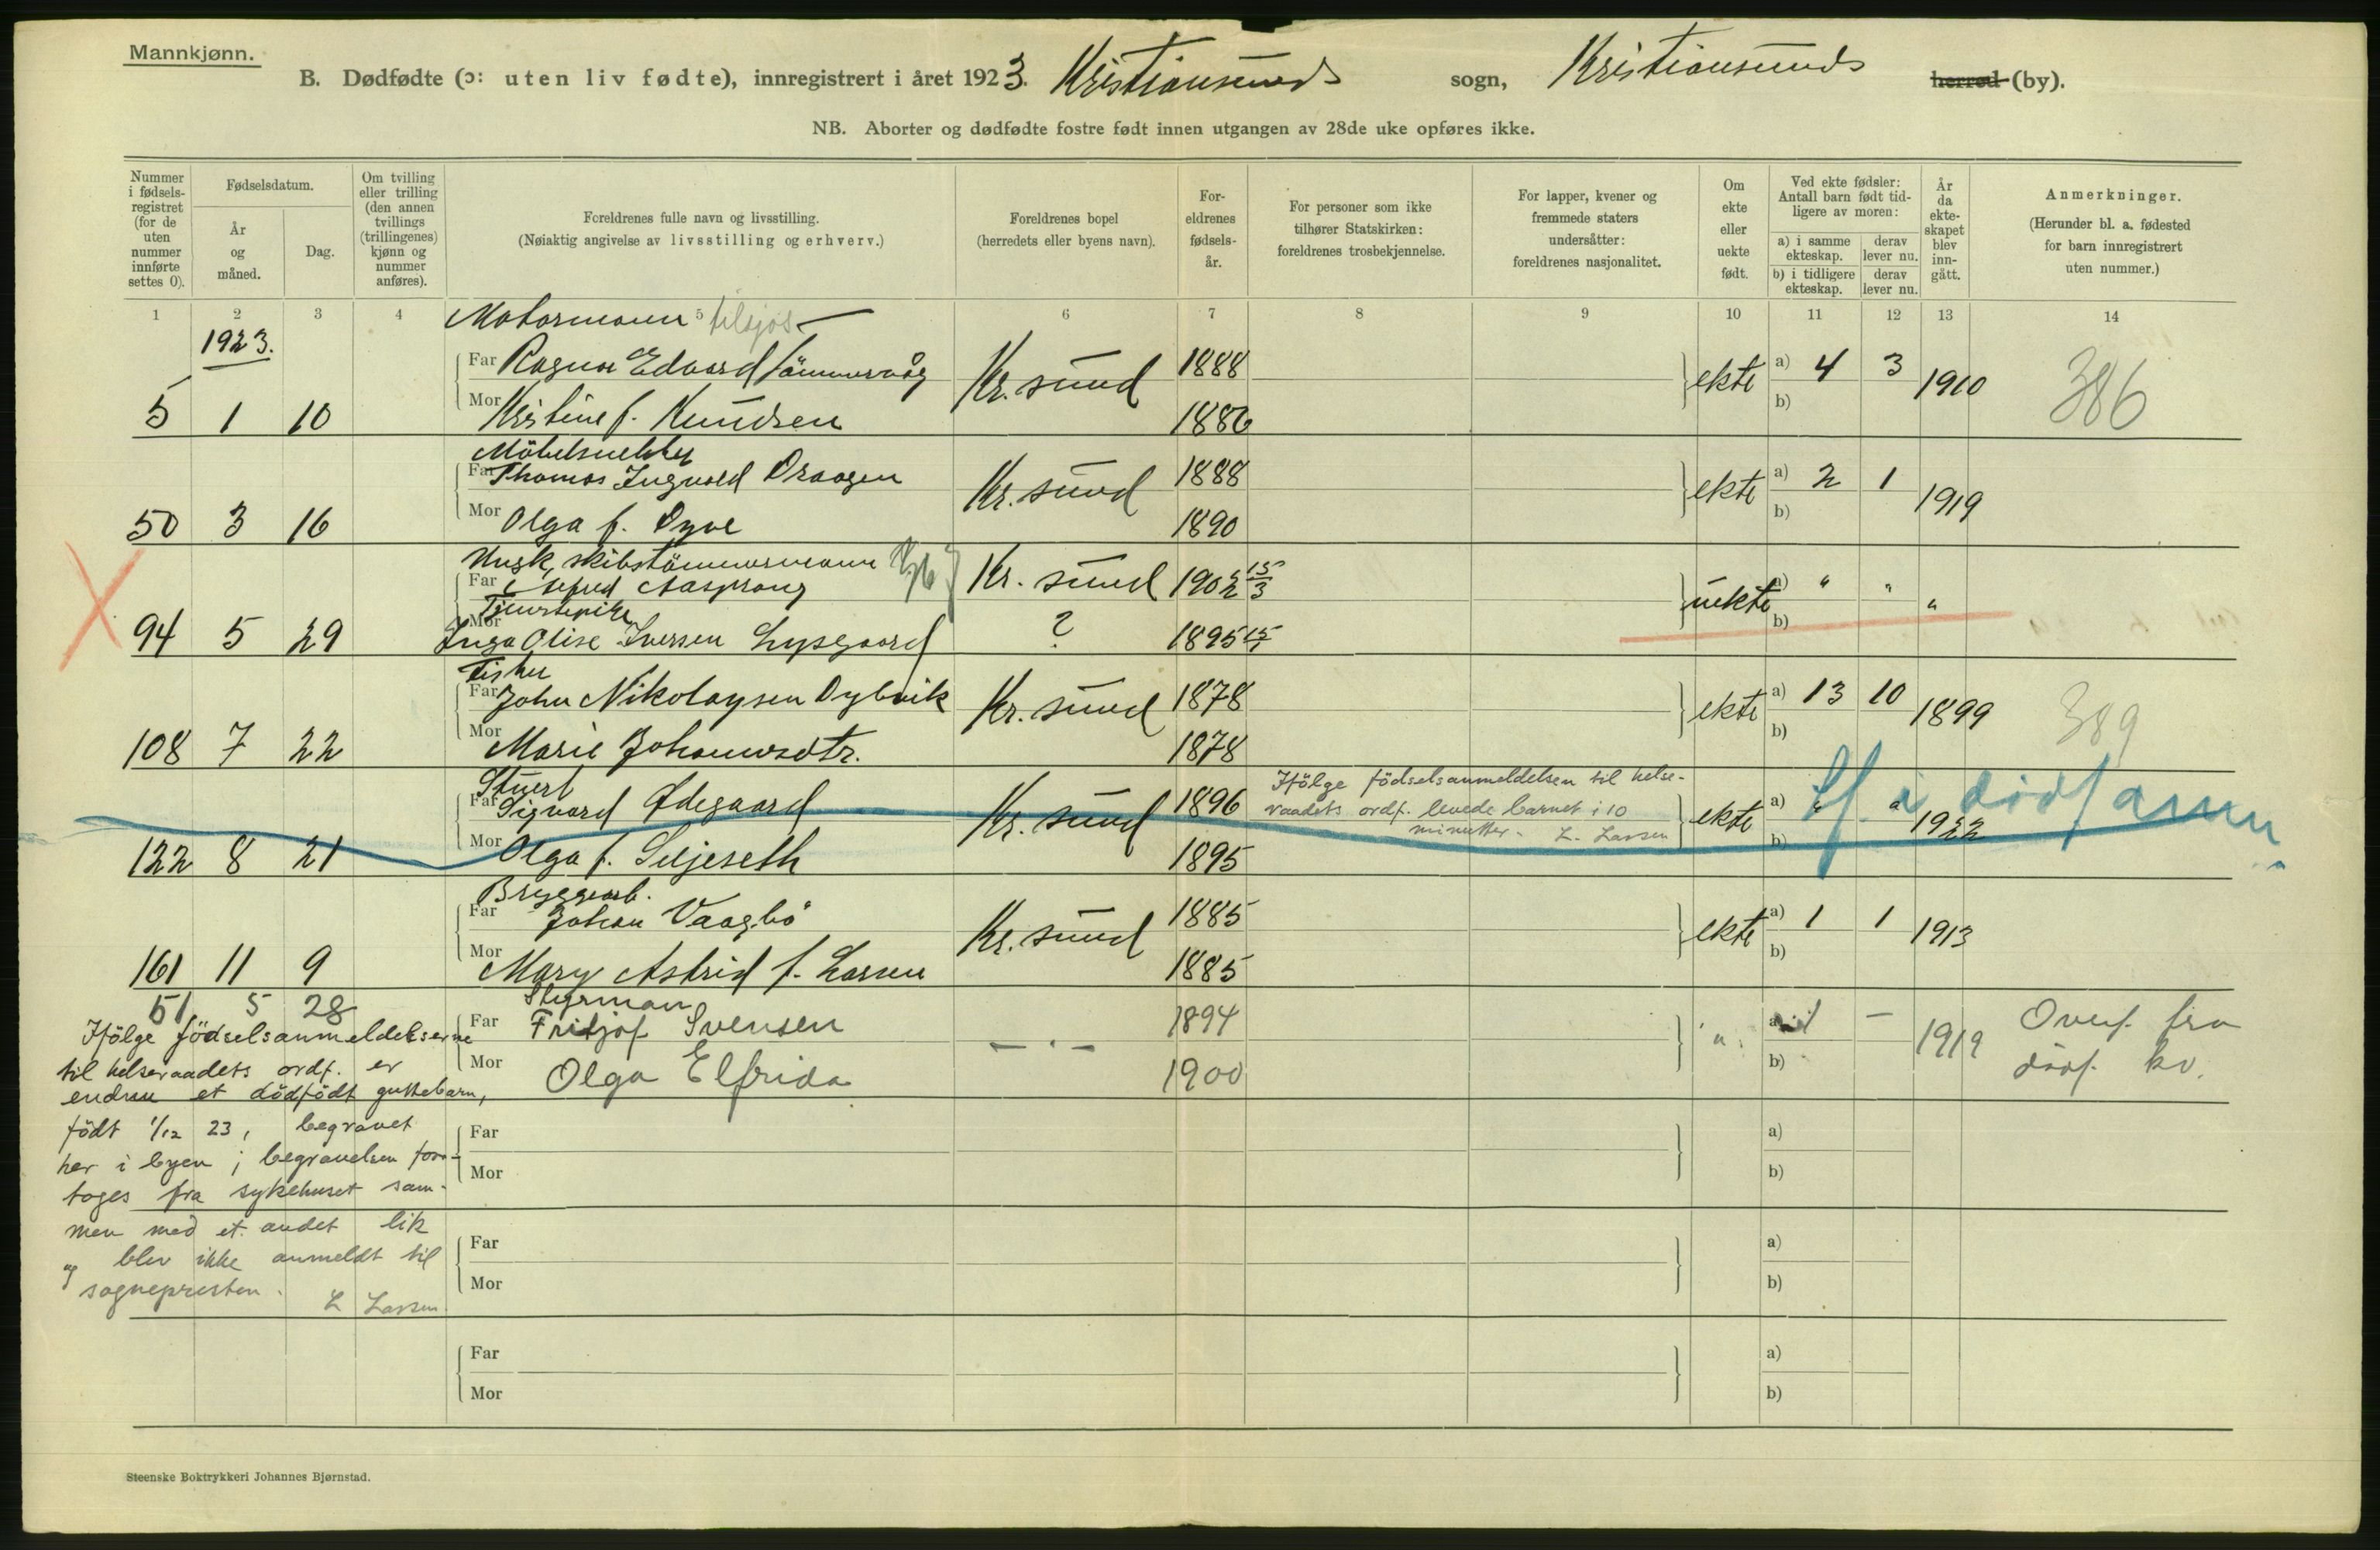 Mannkjønn.
B. Dødfødte (ɔ: uten liv fødte), innregistrert i året 1923. Kristiansunds sogn, Kristiansunds herred (by).
NB. Aborter og dødfødte fostre født innen utgangen av 28de uke opføres ikke.
Nummer i fødsels-registret (for de uten nummer innførte settes 0).
Fødselsdatum.
År og måned.
Dag.
Om tvilling eller trilling (den annen tvillings (trillingenes) kjønn og nummer anføres).
Foreldrenes fulle navn og livsstilling.
(Nøiaktig angivelse av livsstilling og erhverv.)
Foreldrenes bopel
(herredets eller byens navn).
For-eldrenes fødsels-år.
For personer som ikke tilhører Statskirken: foreldrenes trosbekjennelse.
For lapper, kvener og fremmede staters undersåtter: foreldrenes nasjonalitet.
Om ekte eller uekte født.
Ved ekte fødsler: Antall barn født tid-ligere av moren:
a) i samme ekteskap. derav lever nu.
b) i tidligere ekteskap. derav lever nu.
År da ekte-skapet blev inn-gått.
Anmerkninger.
(Herunder bl. a. fødested for barn innregistrert uten nummer.)
1 2 3 4 5 6 7 8 9 10 11 12 13 14
1923.
Motormann tilsjøs
Far Ragnar Edvard 1888 a) 4 3
5 1 10 Kr.sund ekte 1910 386
Mor Kristine f. Knudsen 1886 b)
Möbelsnekker
Far Thomas Ingvald Draagen 1888 a) 2 1
50 3 16 Kr.sund ekte 1919
Mor Olga f. Dyve 1890 b)
Unsk, skibstömmermann
Far Alfred Aasprang Kr.sund 1902 15/3 uekte a) " " "
Tjenestepike
94 5 29 Mor Inga Olise Iversen Lysgaard ? 1895 b)
Fisker
Far John Nikolaysen Dybvik 1878 a) 13 10
108 7 22 Kr.sund ekte 1899 389
Mor Marie Johannesdtr. 1878 b)
Stuert
Far Sigvard Ødegaard Kr.sund 1896 ekte a) " " 1922
122 8 21 Mor Olga f. Siljeseth 1895 b)
Ifölge födselsanmeldelsen til helse-
raadets ordf. levede barnet i 10
minutter. L. Larsen
Lf. i dödf
Bryggearb.
Far Johan Vaagbö 1885 a) 1 1
161 11 9 Kr.sund ekte 1913
Mor Mary Astrid f. Larsen 1885 b)
51 5 28 Styrman
Far Fritjof Svensen 1894 " a) 1 – 1919 Overf. fra
Mor Olga Elfrida – " – 1900 b) dödf. kv.
Ifölge födselsanmeldelserne
til helseraadets ordf. er
endnu et dödfödt guttebarn,
födt 1/12 23, begravet
her i byen; begravelsen fore-
toges fra sykehuset sam-
men med et andet lik
og blev ikke anmeldt til
sognepresten.
L Larsen.
Far a)
Mor b)
Far a)
Mor b)
Far a)
Mor b)
Steenske Boktrykkeri Johannes Bjørnstad.